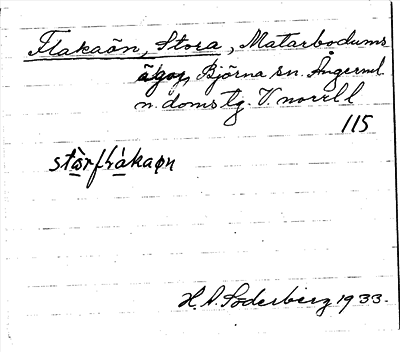 Flakaön, Stora, Matarbodums
ägor, Björna sn. Ångerml.
n. doms tg. V. norrl. l
115
stòrflákaøn
H. A. Söderberg 1933.